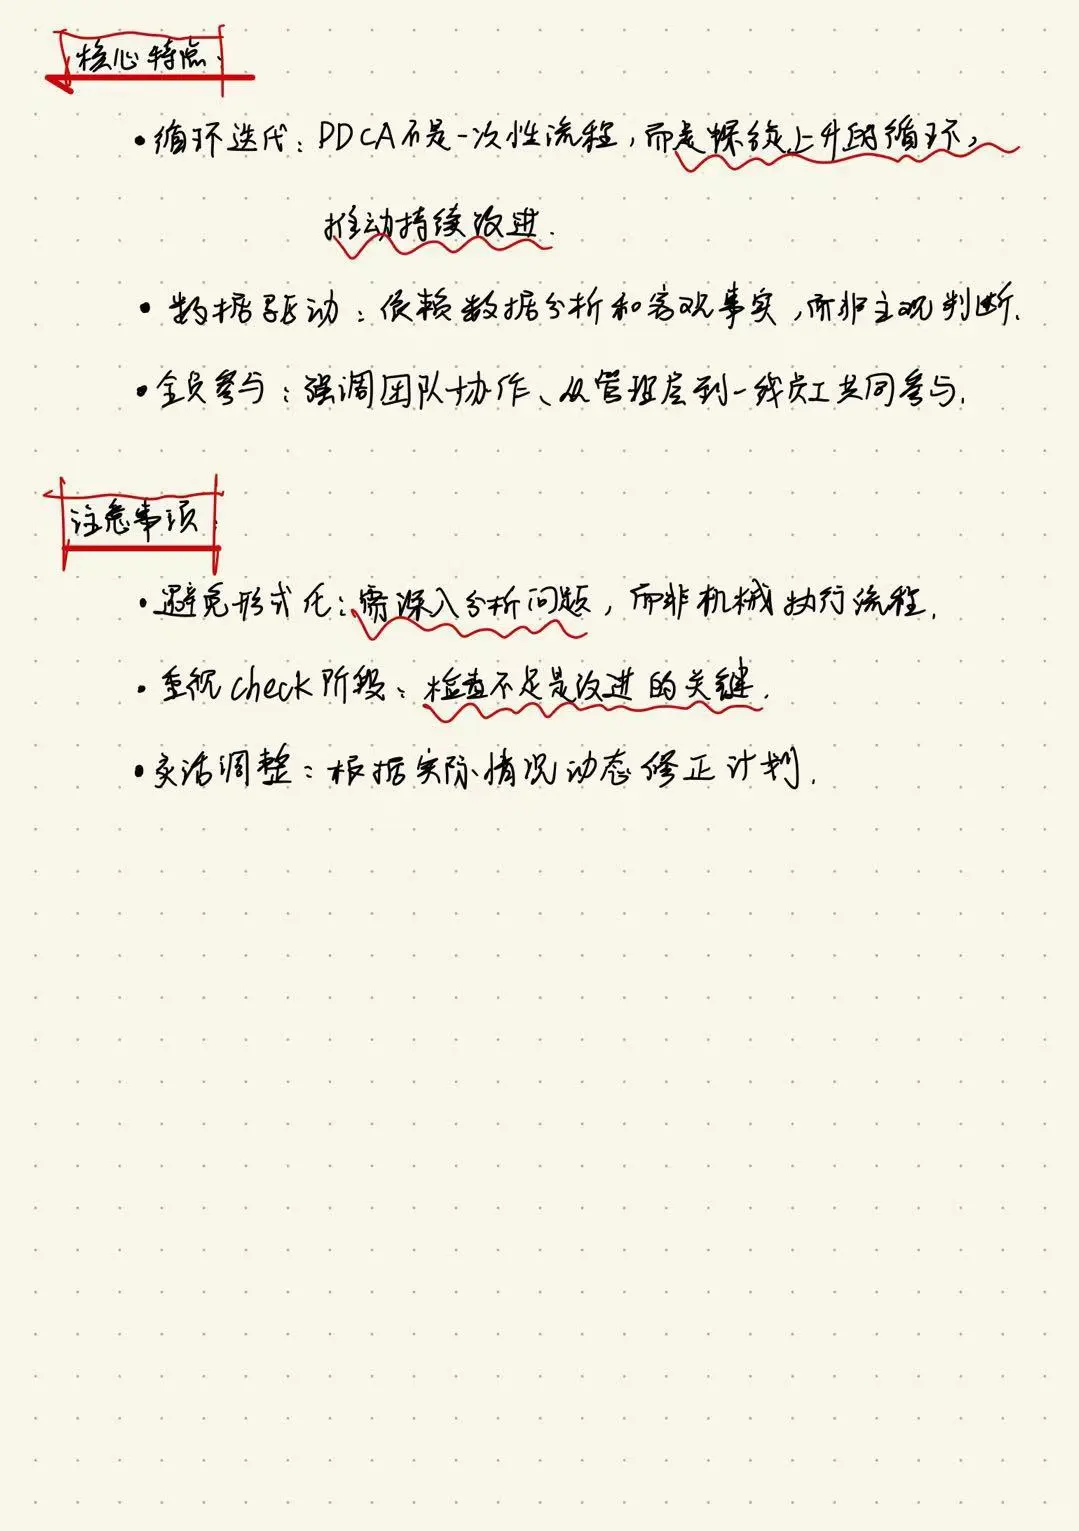 核心特点:
•循环迭代: PDCA不是一次性流程,而是螺旋上升的循环,
推动持续改进.
•数据驱动:依赖数据分析和客观事实,而非主观判断.
•全员参与:强调团队协作、从管理层到一线员工共同参与.
注意事项:
•避免形式化:需深入分析问题,而非机械执行流程.
•重视check阶段:检查不足是改进的关键.
•灵活调整:根据实际情况动态修正计划.